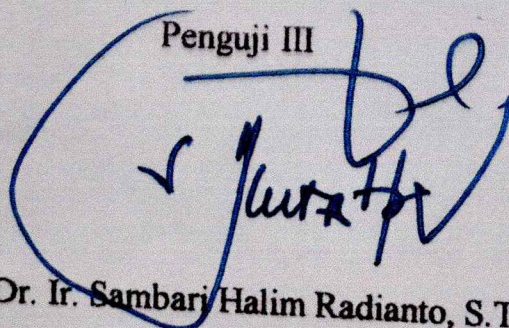 Penguji III
Dr. Ir. Sambari Halim Radianto, S.T